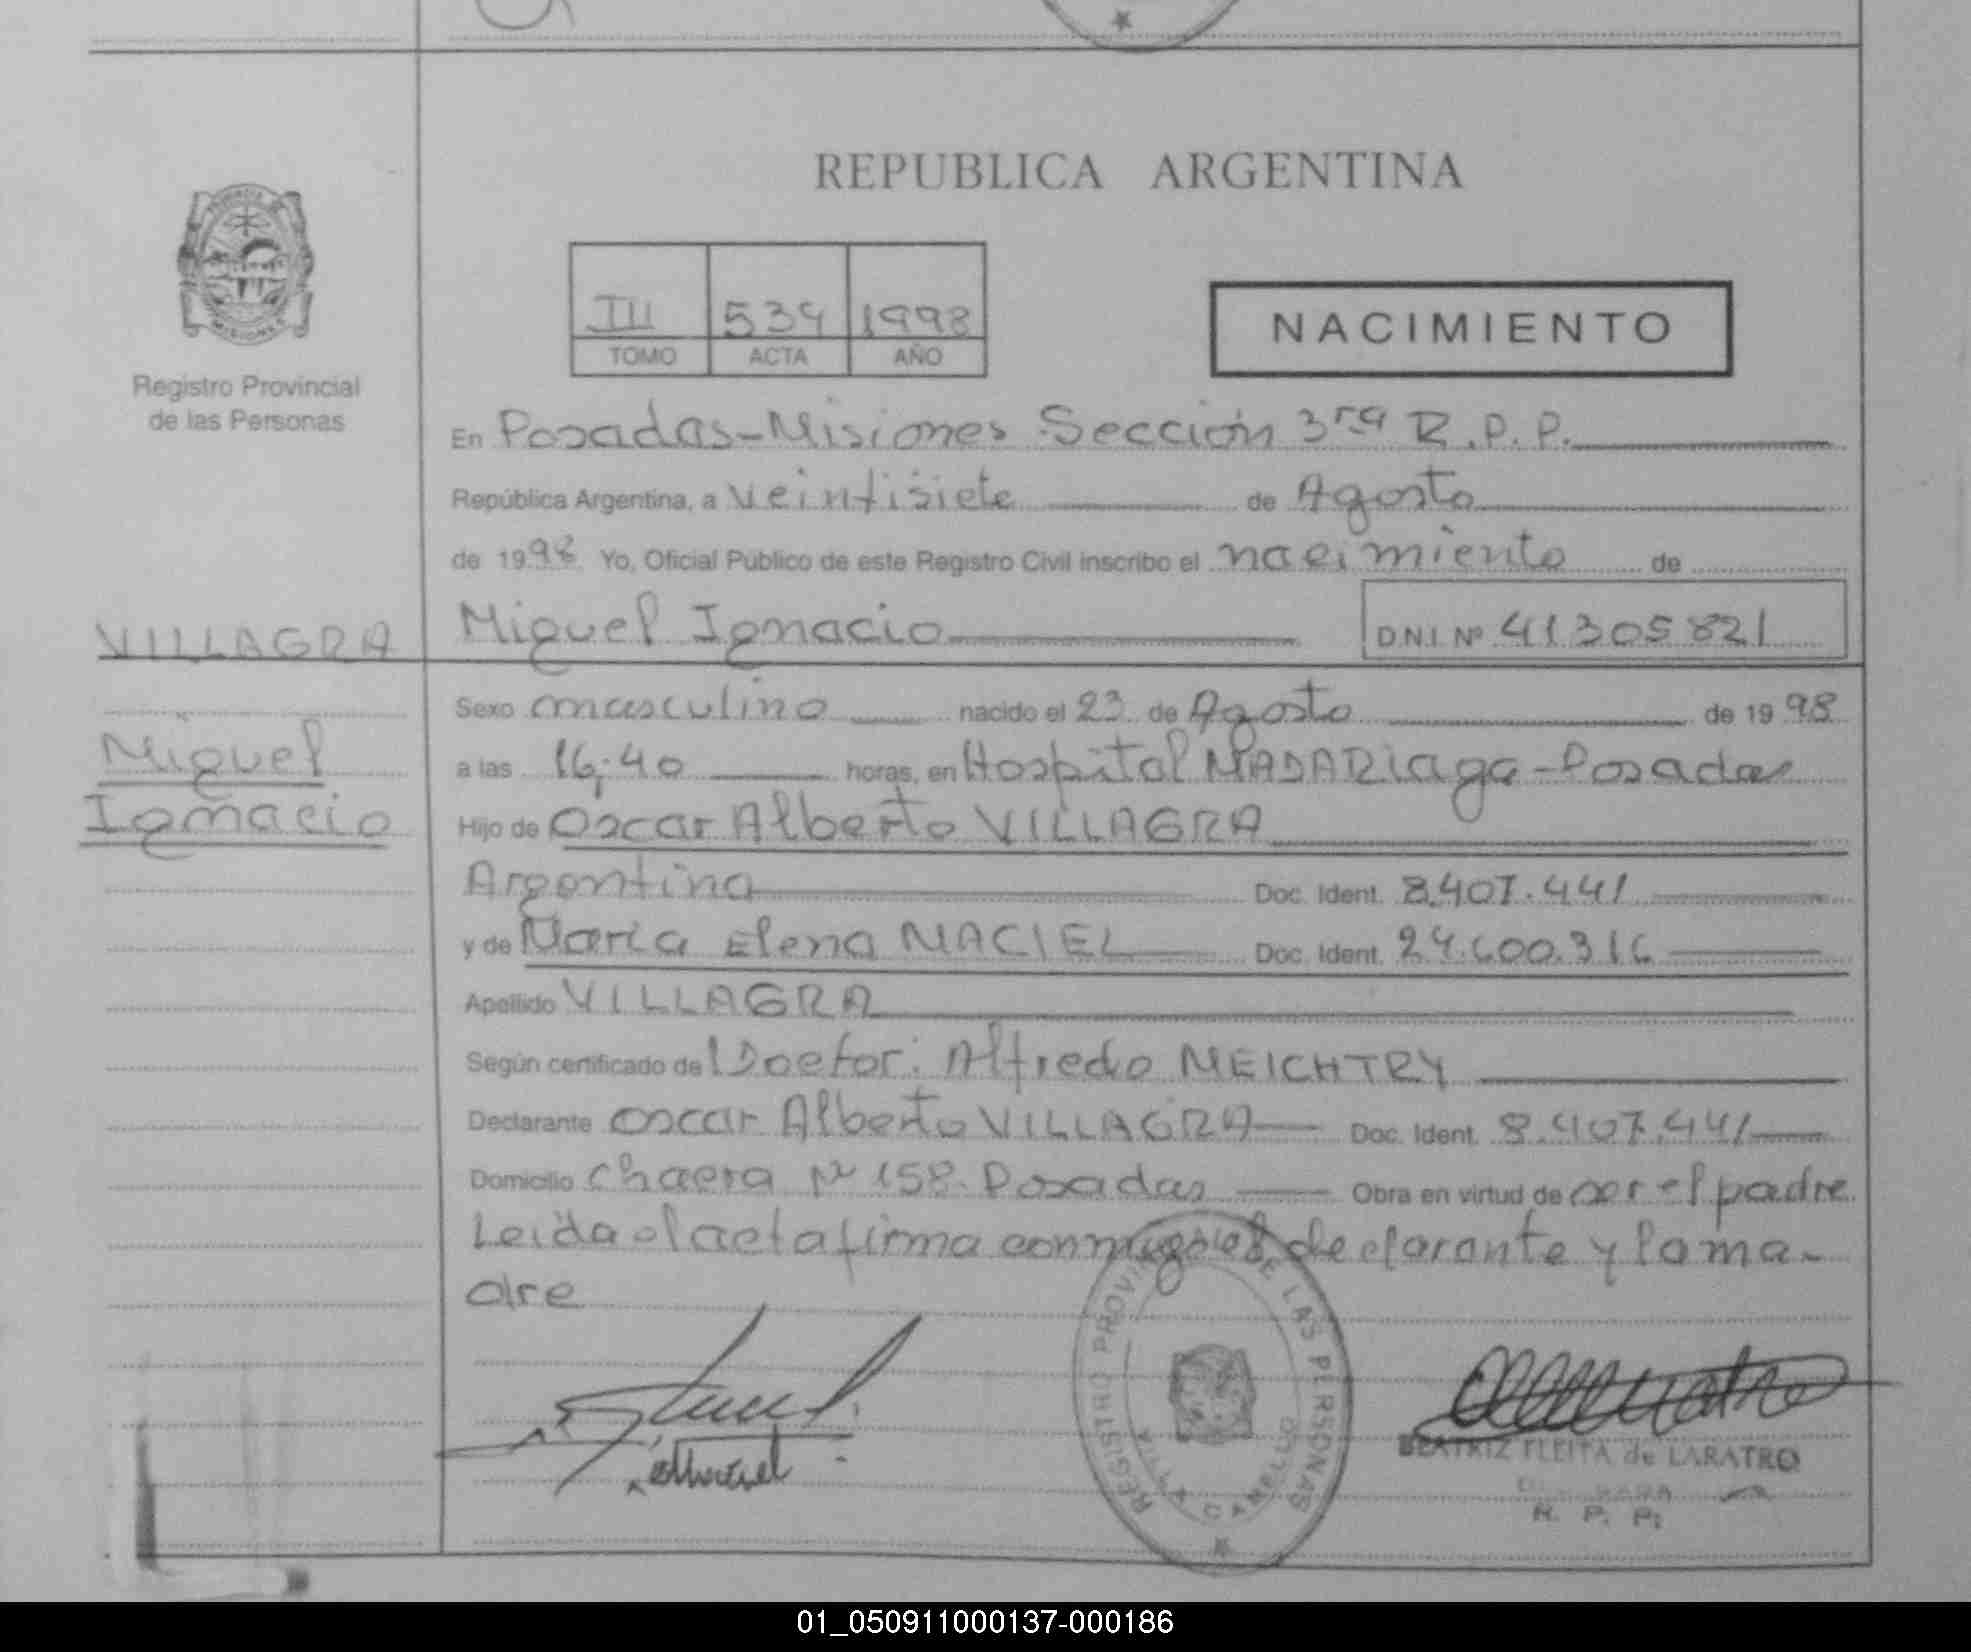 REPUBLICA ARGENTINA
III 534 1998
TOMO ACTA AÑO
NACIMIENTO
Registro Provincial
de las Personas
En Posadas-Misiones Sección 3ra R.P.P.
República Argentina, a veintisiete de Agosto
de 1998 Yo, Oficial Público de este Registro Civil inscribo el nacimiento de
Miguel Ignacio D.N.I. Nº 41305821
VILLAGRA
Miguel
Ignacio
Sexo masculino nacido el 23 de Agosto de 1998
a las 16:40 horas, en Hospital MADARiaga-Posadas
Hijo de Oscar Alberto VILLAGRA
Argentina Doc. Ident. 8.407.441
y de María Elena MACIEL Doc. Ident. 24.600.316
Apellido VILLAGRA
Según certificado del Doctor: Alfredo MEICHTRY
Declarante Oscar Alberto VILLAGRA Doc. Ident. 8.407.441
Domicilio Chacra Nº 158. Posadas Obra en virtud de ser el padre
Leída el acta firma conmigo el declarante y la ma-
dre
REGISTRO PROVINCIAL DE LAS PERSONAS
BEATRIZ FLEITA de LARATRO
R. P. P.
01_050911000137-000186